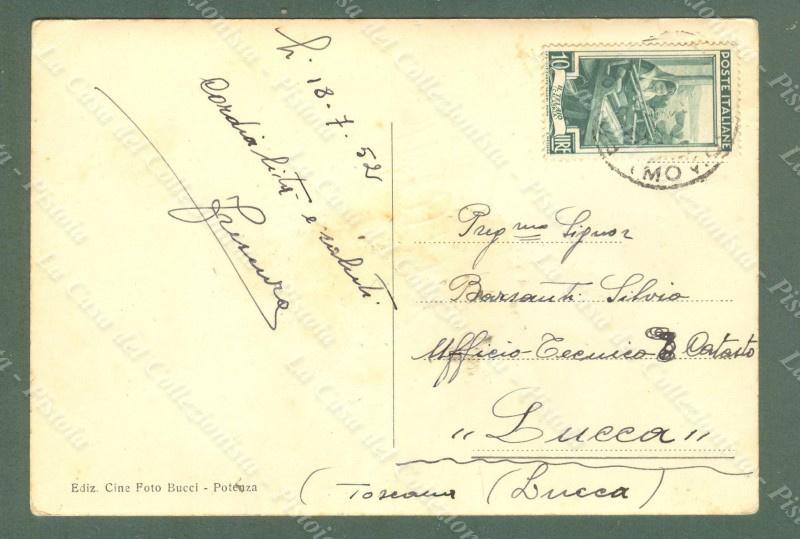 h. 18.7.52
Cordialità e saluti.
POSTE ITALIANE
10
LIRE
Preg mo Signor
Barsanti Silvio
Ufficio Tecnico E Catasto
"Lucca"
(Toscana (Lucca)
Ediz. Cine Foto Bucci - Potenza
La Casa del Collezionista - Pistoia